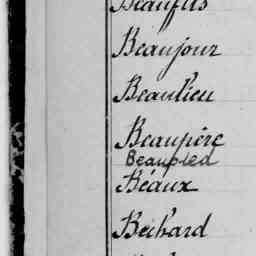 Beaufils
Beaujour
Beaulieu
Beaupère
Beaupied
Béaux
Bechard